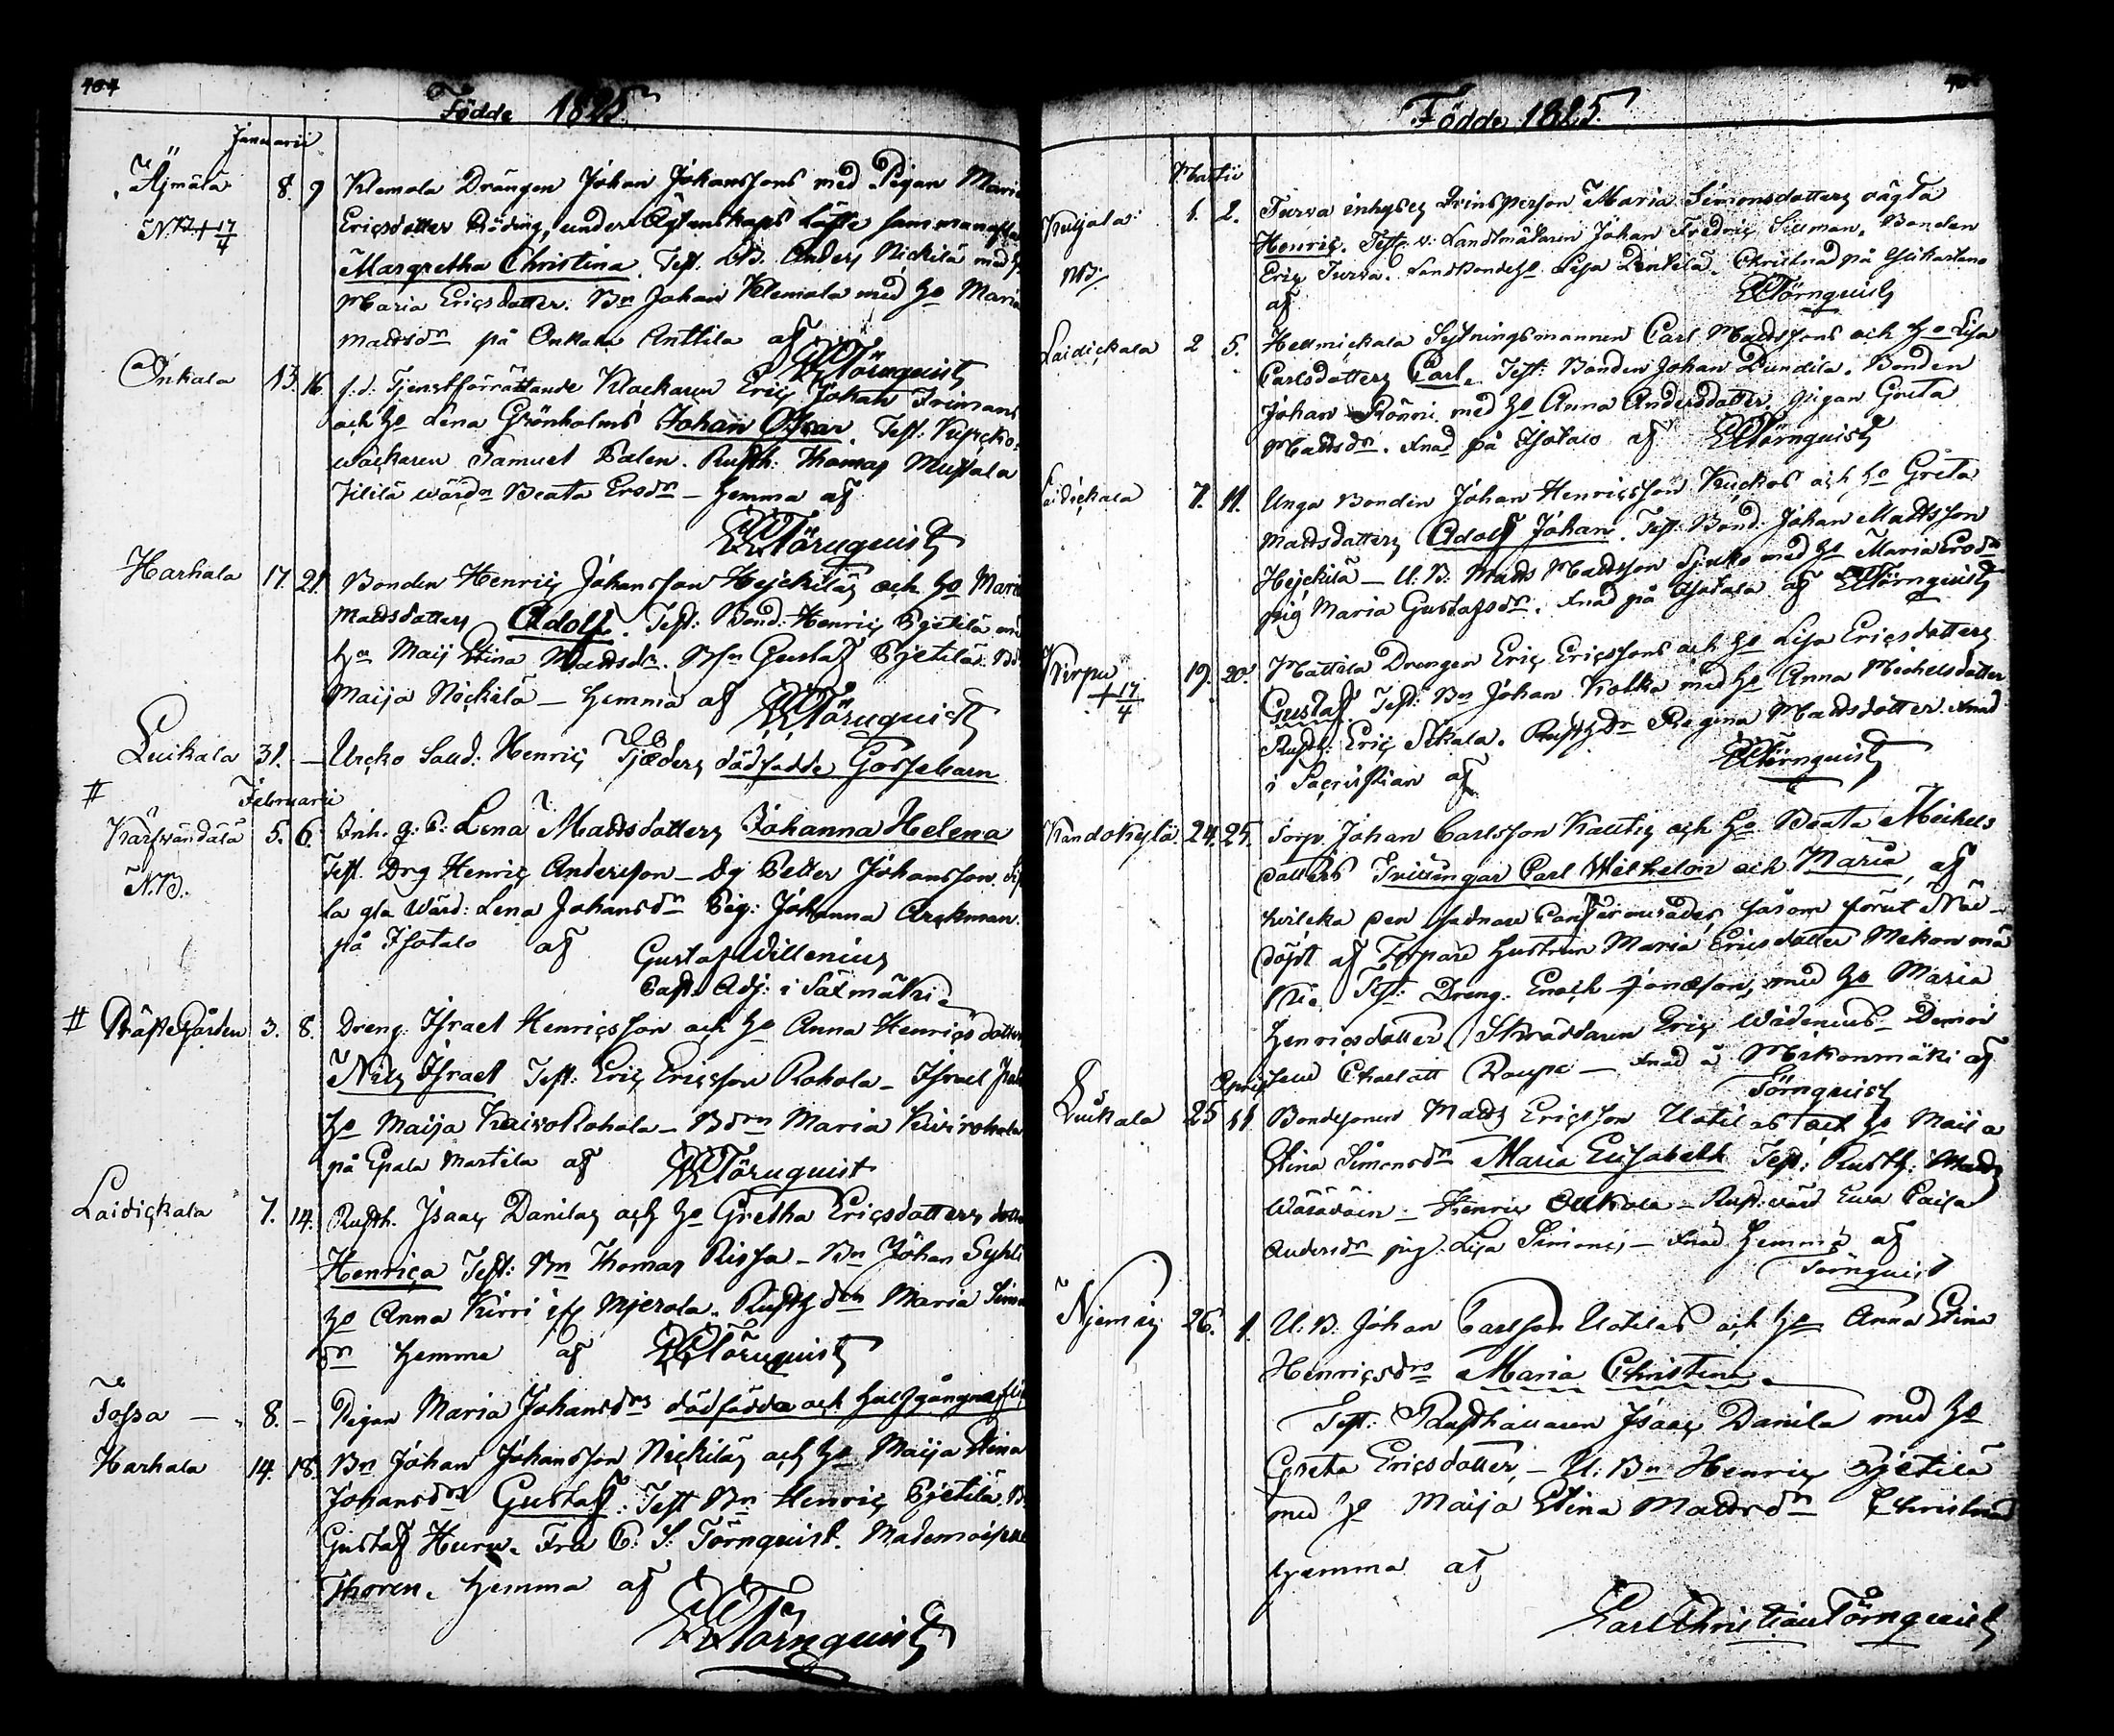 404
Födde 1825.
Januarii
Äjmälä 8. 9 Klemola Drängen Johan Johanssons med Pigan Maria
N.B. + 17/4 Ericsdotter Röding, under Ägtenskaps Löfte sammanaflade
Margretha Christina. Test. Anders Nickilä med
Maria Ericsdotter. Bn Johan Klemola med Ho Maria
Mattsdr på Onkala Anttila af
CCTörnquist
Onkala 13. 16. f.d. Tjenstförrättande Klockaren Eric Johan Frimans
och Ho Lena Grönholms Johan Oscar. Test: Kyrcko-
wäckaren Samuel Palen. Rusth: Thomas Mustala
Jililä wärdn Beata Ersdr – hemma af
CCTörnquist
Harhala 17. 21. Bonden Henric Johansson Hejckiläs och Ho Maria
Mattsdotters Adolf. Test: Bond: Henric Pjetilä med
Ho Maij Stina Mattsdr. Bsn Gustaf Pjetilä.
Maija Nickilä – hemma af CCTörnquist
Luikala 31. – Urcko Sold: Henric Tjäders dödfödde Gossebarn
Februarii
# Kärsvändälä 5. 6. Inh. q: P: Lena Mattsdotters Johanna Helena
N.B. Test. Drg Henric Andersson – Dg Petter Johansson.
la gla Wärd: Lena Johansdr Pig: Johanna Arckman.
på Isotalo af Gustaf Willenius
Past. Adj: i Säxmäki
# PrästeGården 3. 8. Dreng. Israel Henricsson och Ho Anna Henricsdotters
Nils Israel Test: Eric Ericsson Rohola – Israel
Ho Maija KaivoRohola – Bdrn Maria Kivirohola
på Epala Martila af CCTörnquist
Laidickala 7. 14. Rusth. Isaac Danilas och Ho Gretha Ericsdotters dotter
Henrica Test: Bn Thomas Rissa – Bn Johan Syhli
Ho Anna Kirri Mjerola. Rusth dr Maria
dr hemma af CCTörnquist
Tossa – 8. – Pigan Maria Johansdrs dödfödda och halfgångna
Harhala 14. 18. Bn Johan Johansson Nickiläs och Ho Maija Stina
Johansdrs Gustaf. Test Bn Henric Pjetilä.
Gustaf Huru. Fru C: S: Törnquist. Mademoiselle
Thoren. hemma af
CCTörnquist
Födde 1825.
Martii
Kutjala 1. 2. Turva inhyses Qvinsperson Maria Simonsdotters oägta
NB. Henric. Test: v: Landtmätaren Johan Fredric Silman. Bonden
Eric Turva. Landbonde Ho Lisa Dentilä. Christnad på
af CCTörnquist
Laidickala 2 5. Hellmickala Sytningsmannen Carl Mattssons och Ho Lisa
Carlsdotters Carl. Test: Bonden Johan Dundila. Bonden
Johan Rönni med Ho Anna Andersdotter. Pigan Greta
Mattsdr. Xnad på Isotalo af CCTörnquist
Laidickala 7. 11. Unga Bonden Johan Henricsson Kuckos och Ho Greta
Mattsdotters Adolf Johan. Test: Bond: Johan Mattsson
Hejckilä – U. B: Matts Mattsson med Ho Maria Ersdr
pig Maria Gustafsdr. Xnad på Isotalo af CCTörnquist
Kirpu 19. 20. Mattila Drengen Eric Ericssons och Ho Lisa Ericsdotters
+ 17/4 Gustaf. Test: Bn Johan Kolkka med Ho Anna Michelsdotter
Rusth: Eric Sikala. Rusth Dr Regina Mattsdotter. Xnad
i Sacristian af CCTörnquist
Kandokylä 24. 25. Torp. Johan Carlsson Kautis och Ho Beata Michels
dotters Tvillingar Carl Wilhelm och Maria, af
hvilcka den sednare såsom förut Nöd-
döpt af Torpare Hustrun Maria Ericsdotter Mekonmä
ki. Test: Dreng. Enoch Jonasson, med Ho Maria
Henricsdotter. Skräddaren Eric Widenius – Demoi
sell Charlott Roupe – Xnad å Mekonmäki af
Törnquist
April
Luikala 25 11 Bondesonen Matts Ericsson Uotilas och Ho Maija
Stina Simonsdr Maria Elisabeth Test: Rusth: Matts
Wääräin – Henric Ollikola – Rust:wärd Ewa Caisa
Andersdr pig. Lisa Simons – Xnad hemma af
Törnquist
Njemis 26. 1. U: B: Johan Carlsson Uotilas och Ho Anna Stina
Henricsdrs Maria Christina.
Test: Rusthållaren Isaac Danila med Ho
Greta Ericsdotter, – U: Bn Henric Pjetilä
med Ho Maija Stina Mattsdr Christnad
hemma af
Carl Christian Törnquist